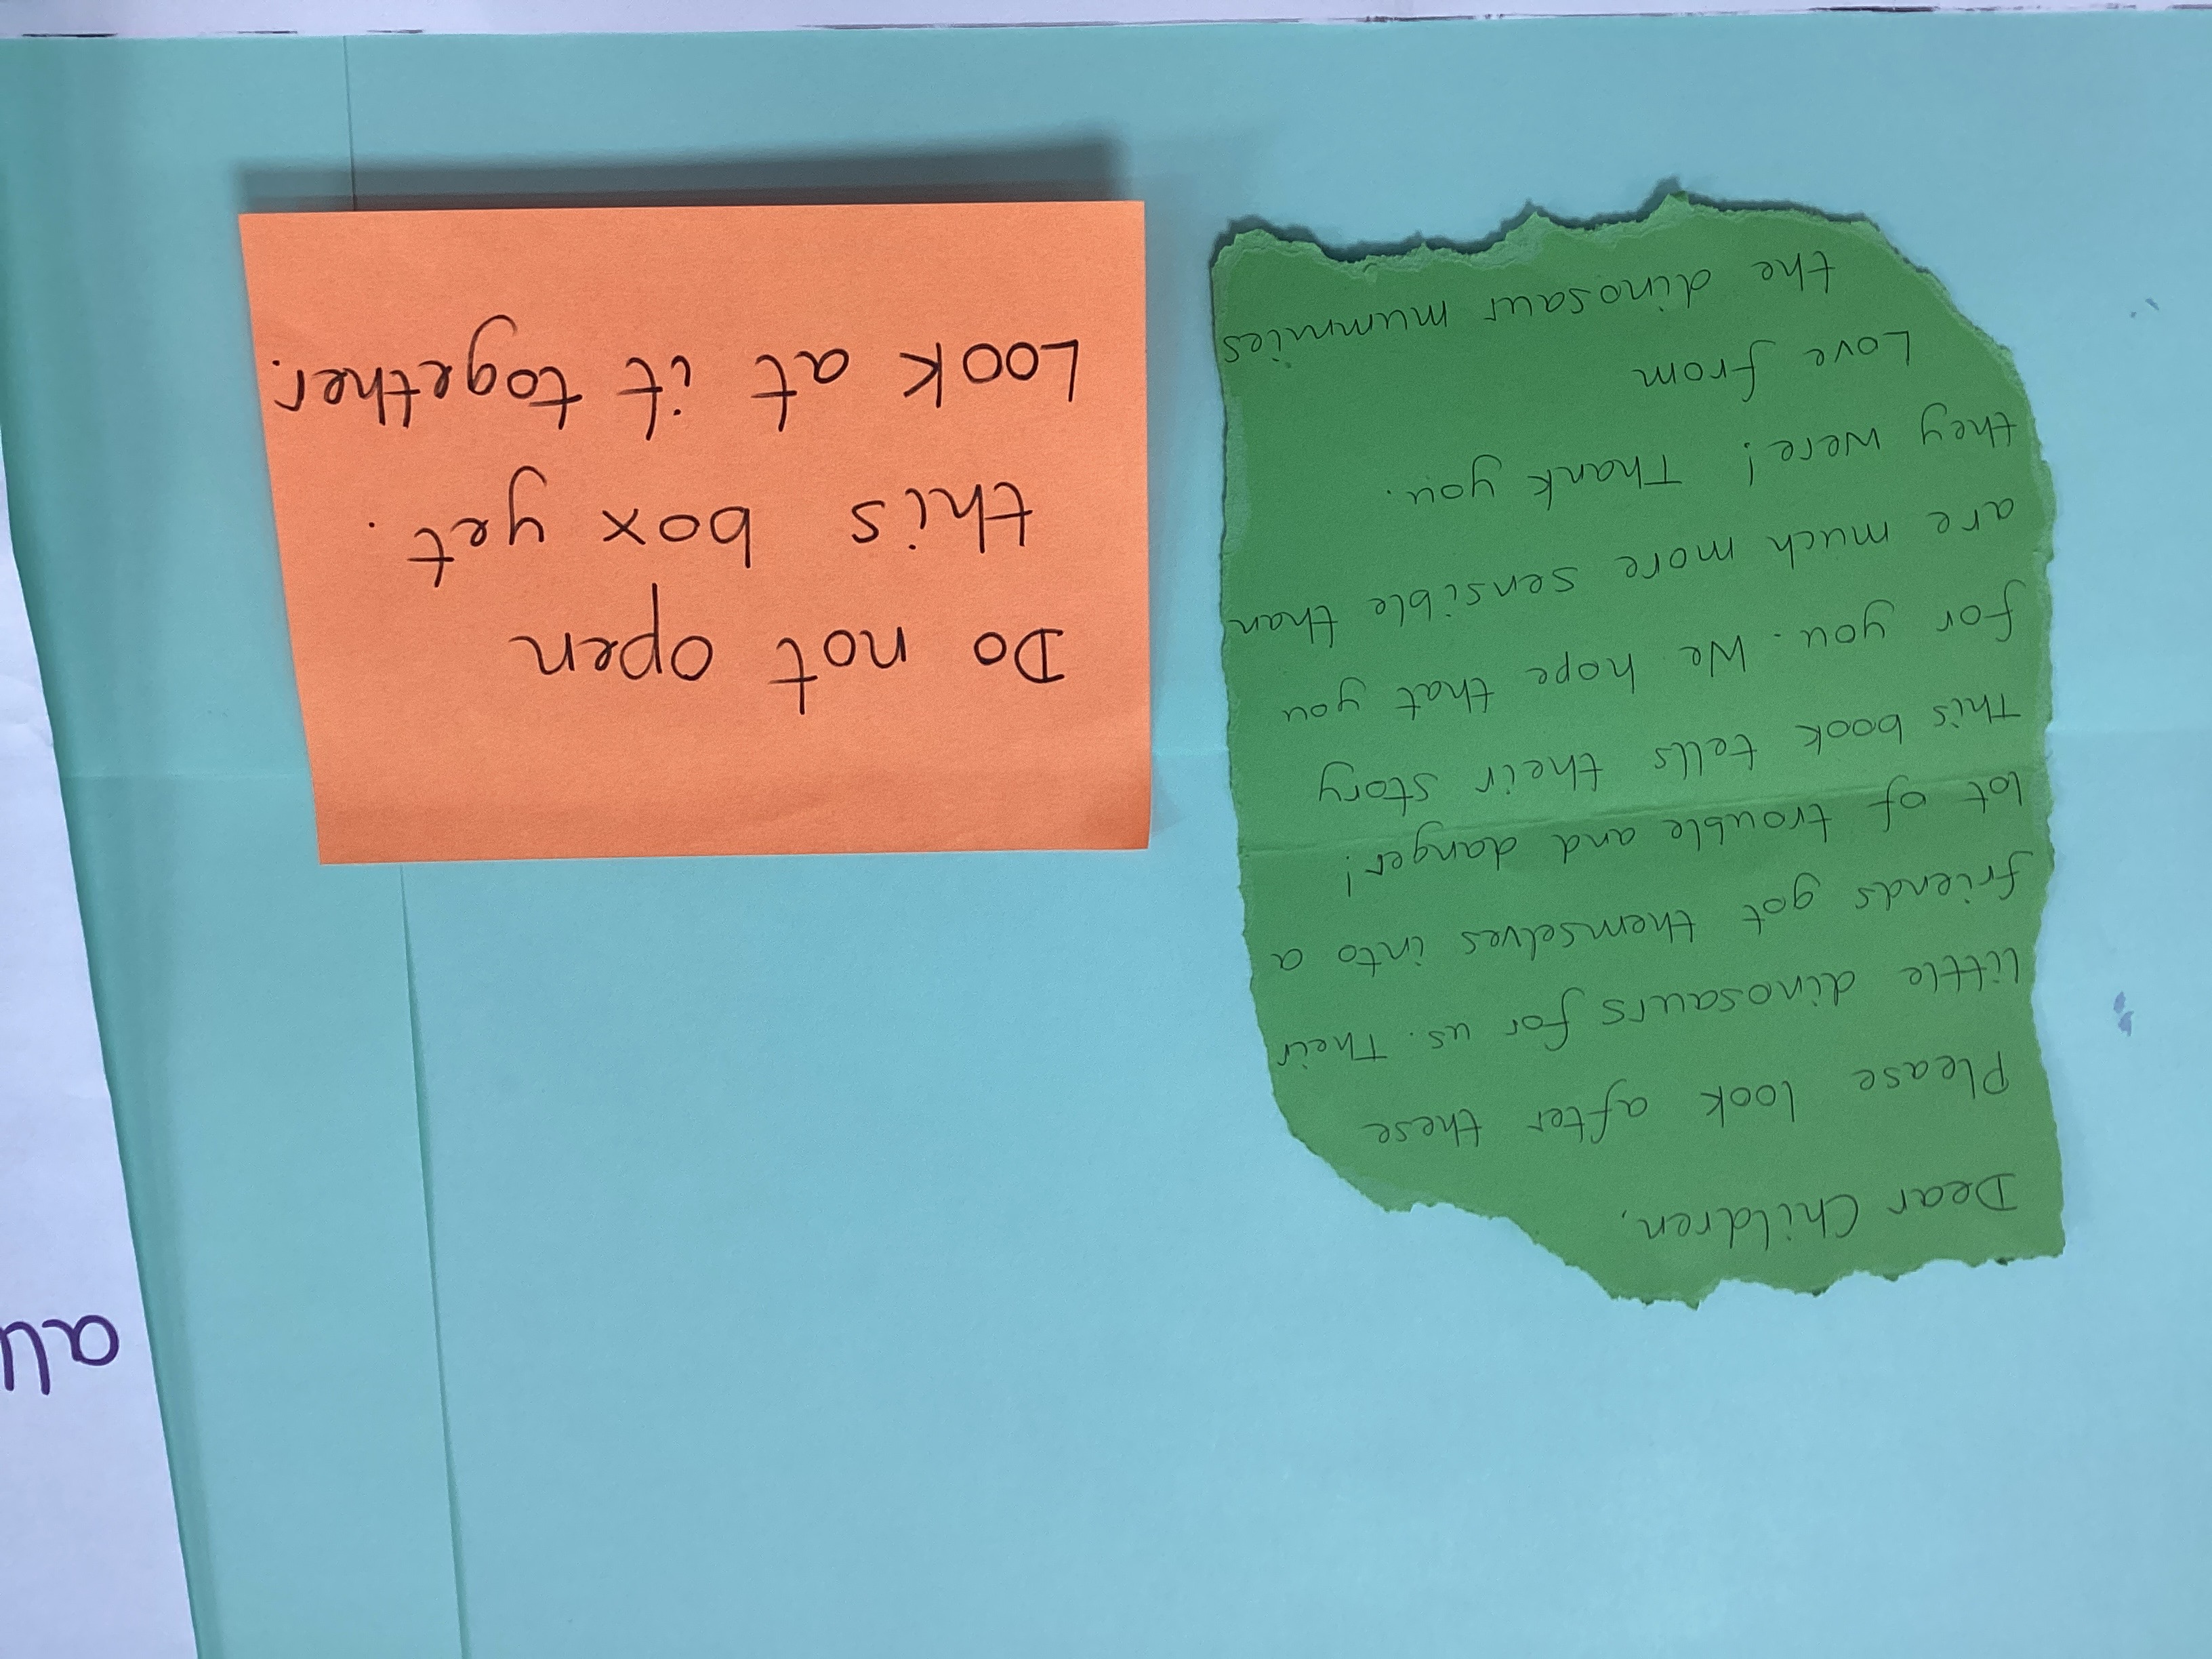 Dear Children,
Please look after these
little dinosaurs for us. Their
friends got themselves into a
lot of trouble and danger!
This book tells their story
for you. We hope that you
are much more sensible than
they were! Thank you.
Love from
the dinosaur mummies
Do not open
this box yet.
Look at it together.